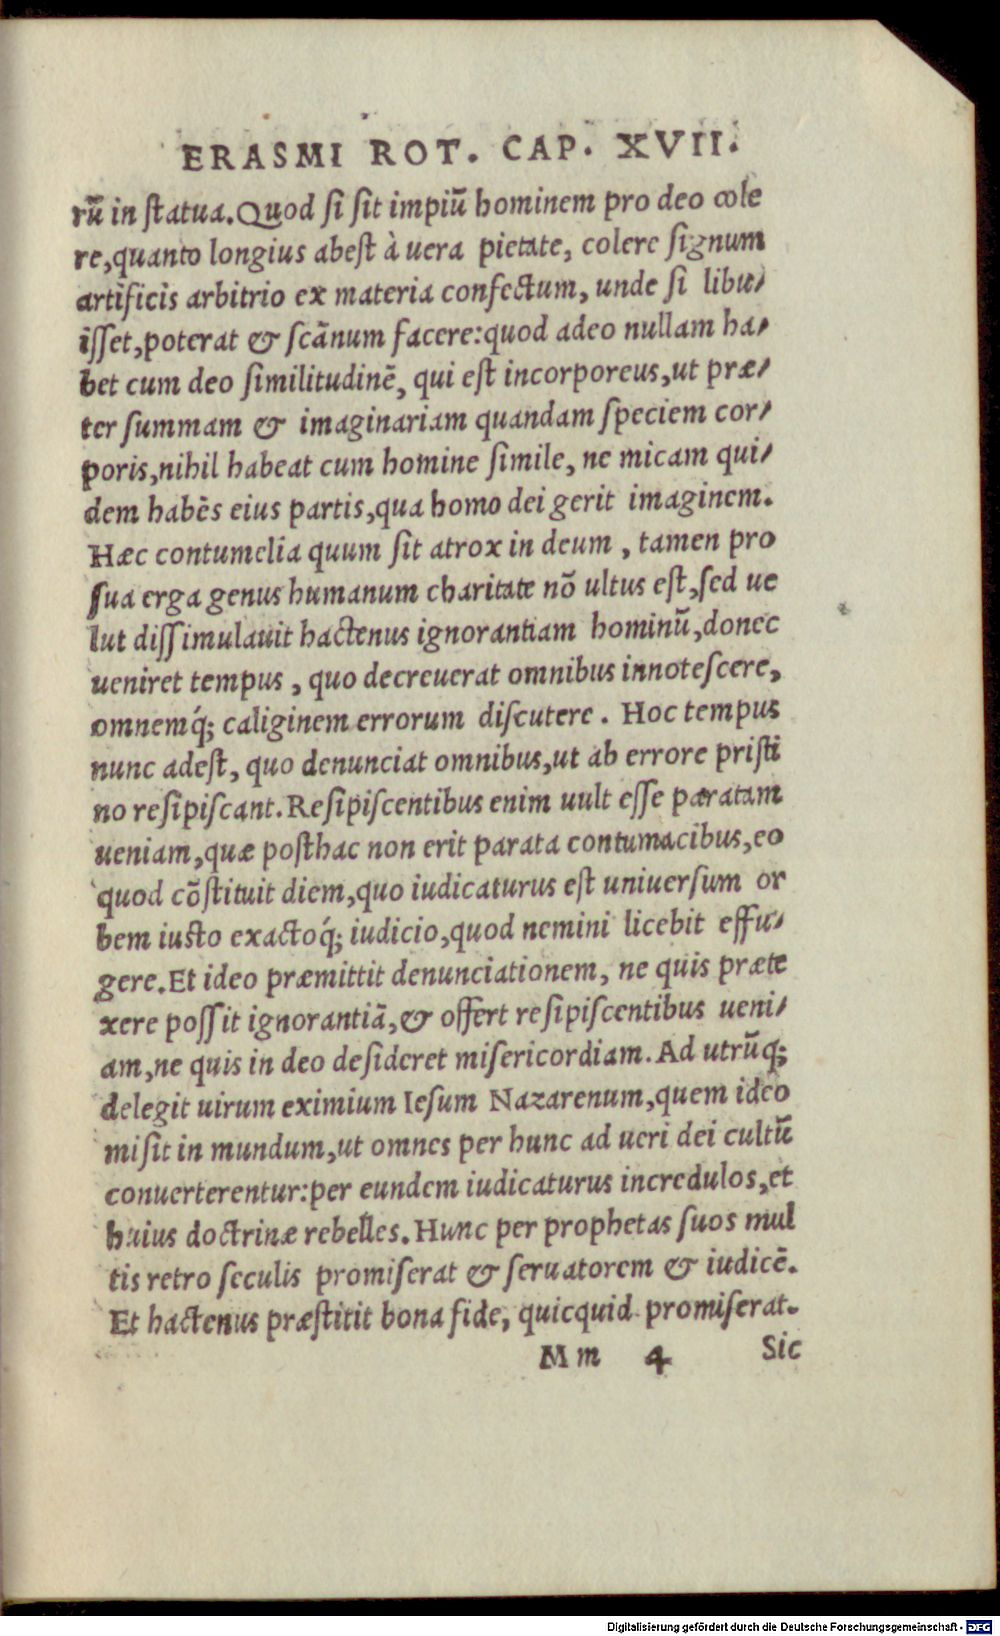 ERASMI ROT. CAP. XVII.
rū in ſtatua. Quod ſi ſit impiū hominem pro deo cole
re, quanto longius abeſt à uera pietate, colere ſignum
artificis arbitrio ex materia confectum, unde ſi libu/
iſſet, poterat & ſcānum facere: quod adeo nullam ha/
bet cum deo ſimilitudinē, qui eſt incorporeus, ut præ/
ter ſummam & imaginariam quandam ſpeciem cor/
poris, nihil habeat cum homine ſimile, ne micam qui/
dem habēs eius partis, qua homo dei gerit imaginem.
Hæc contumelia quum ſit atrox in deum, tamen pro
ſua erga genus humanum charitate nō ultus eſt, ſed ue
lut diſſimulauit hactenus ignorantiam hominū, donec
ueniret tempus, quo decreuerat omnibus innoteſcere,
omnemq́; caliginem errorum diſcutere. Hoc tempus
nunc adeſt, quo denunciat omnibus, ut ab errore priſti
no reſipiſcant. Reſipiſcentibus enim uult eſſe paratam
ueniam, quæ poſthac non erit parata contumacibus, eo
quod cōſtituit diem, quo iudicaturus eſt uniuerſum or
bem iuſto exactoq́; iudicio, quod nemini licebit effu/
gere. Et ideo præmittit denunciationem, ne quis præte
xere poſſit ignorantiā, & offert reſipiſcentibus ueni/
am, ne quis in deo deſideret miſericordiam. Ad utrūq;
delegit uirum eximium Ieſum Nazarenum, quem ideo
miſit in mundum, ut omnes per hunc ad ueri dei cultū
conuerterentur: per eundem iudicaturus incredulos, et
huius doctrinæ rebelles. Hunc per prophetas ſuos mul
tis retro ſeculis promiſerat & ſeruatorem & iudicē.
Et hactenus præſtitit bona fide, quicquid promiſerat.
Mm 4 Sic
Digitalisierung gefördert durch die Deutsche Forschungsgemeinschaft - DFG